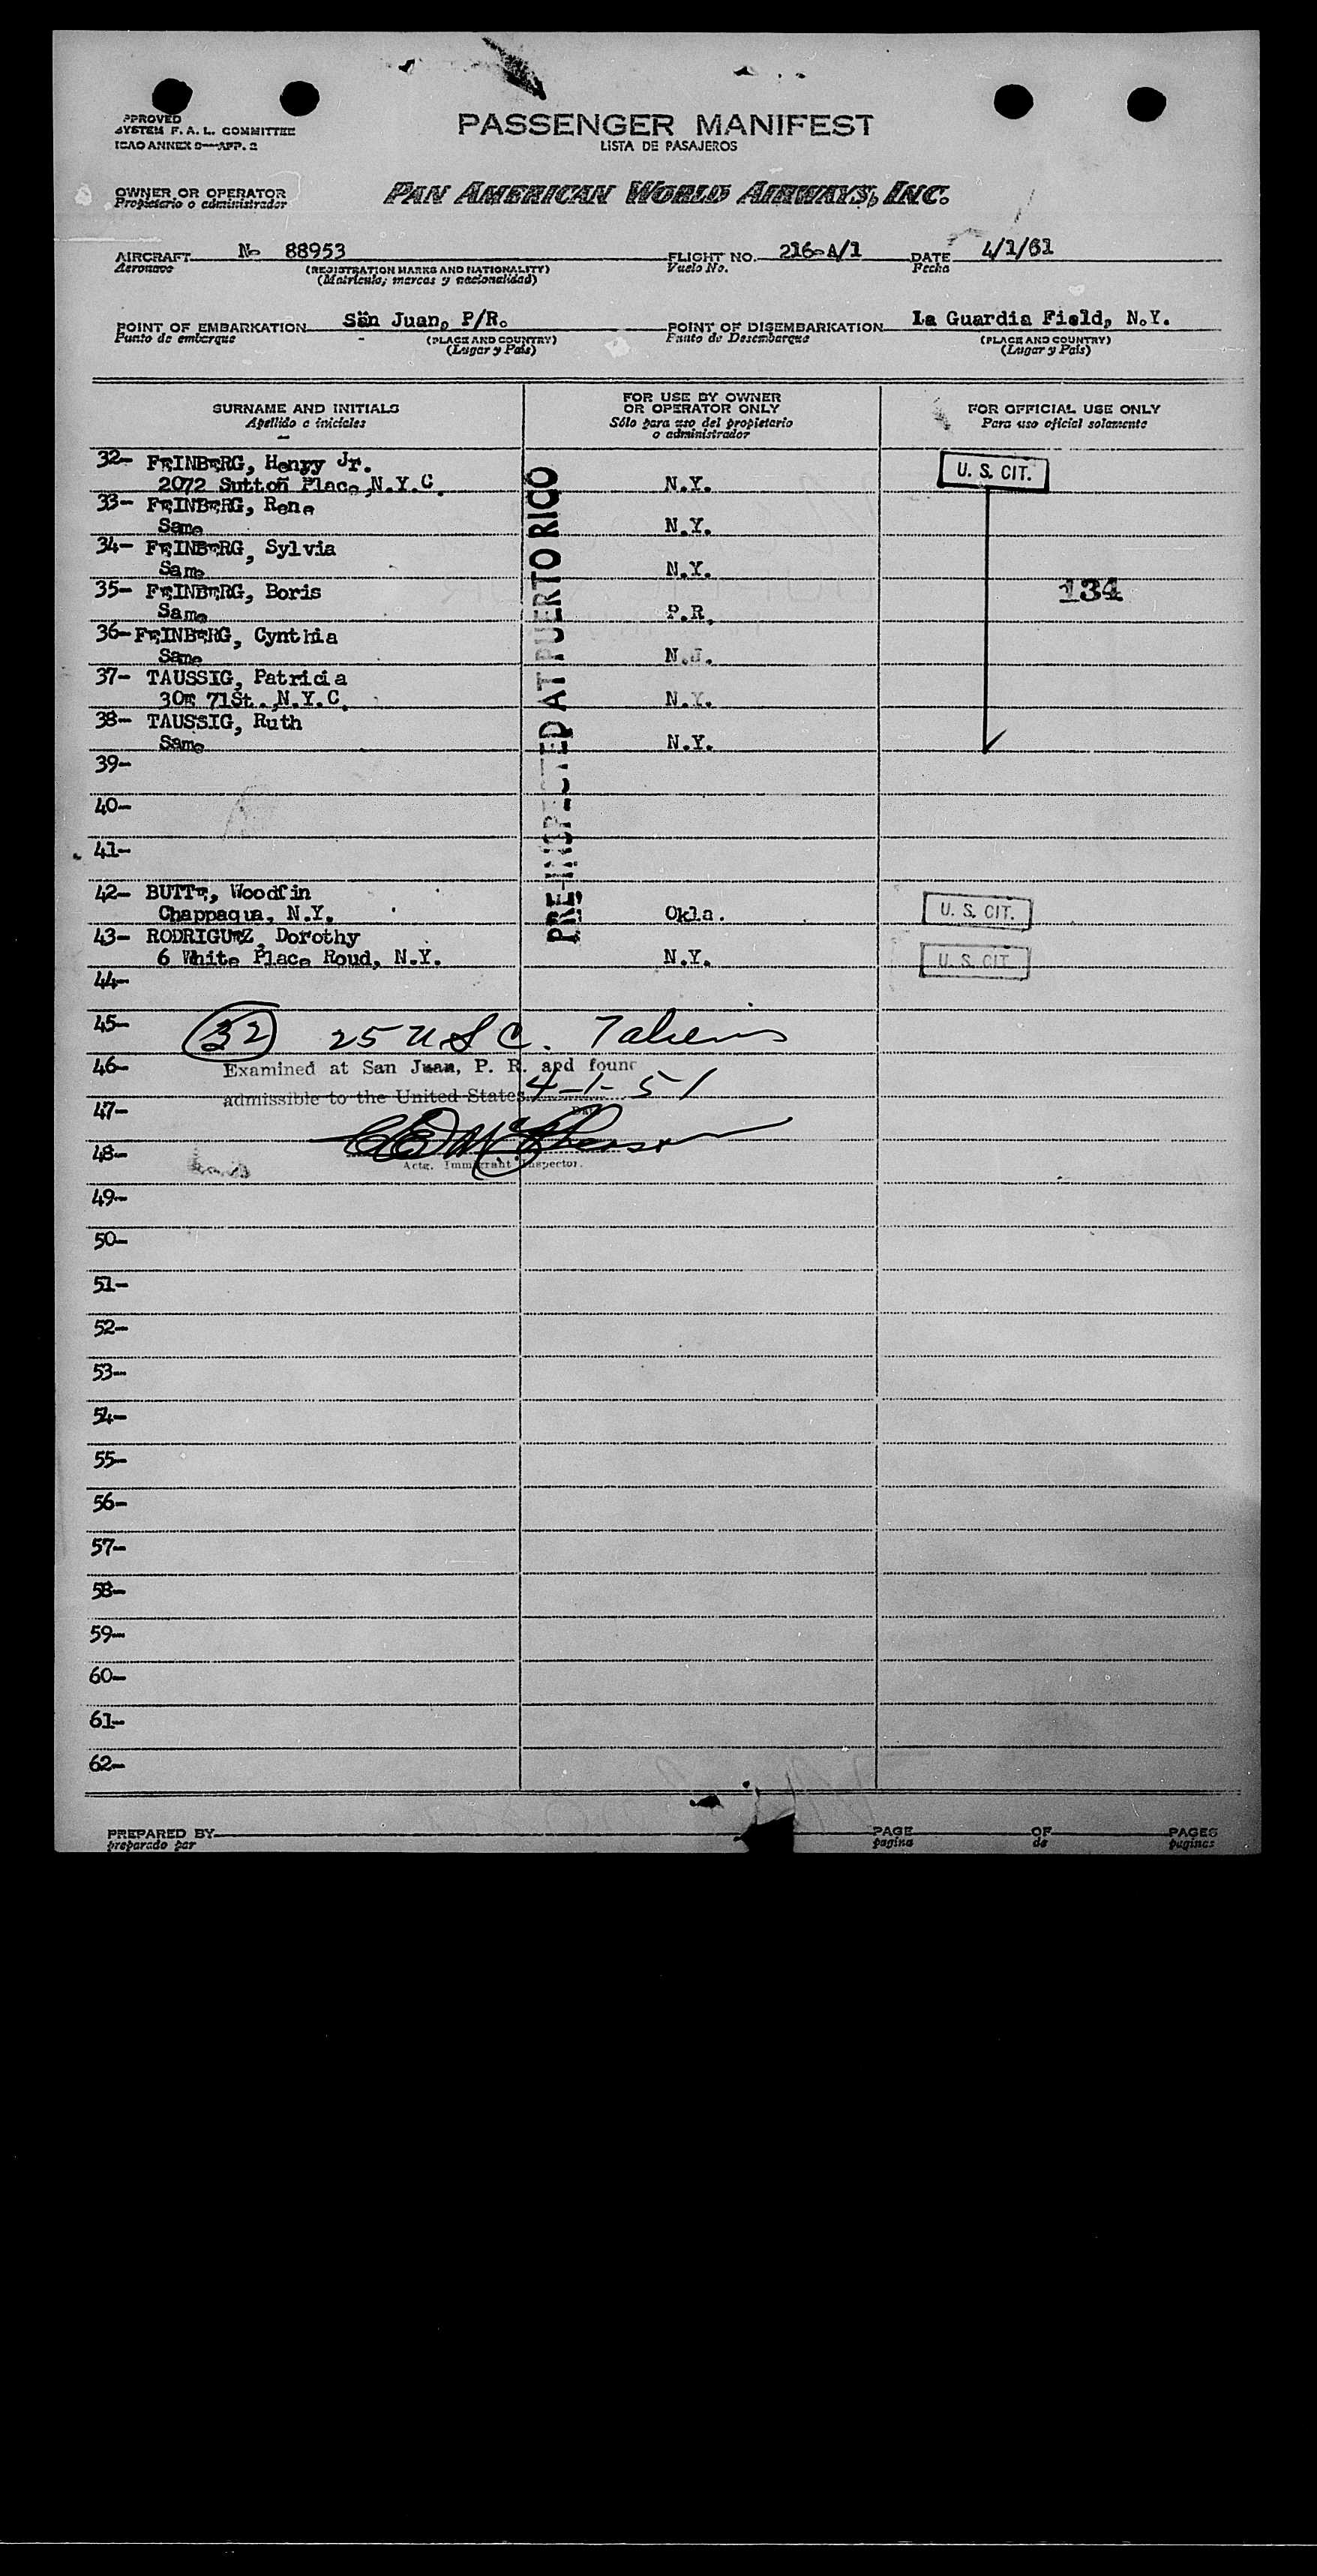 PPROVED
SYSTEM F. A. L. COMMITTEE
ICAO ANNEX 9—APP. 2
PASSENGER MANIFEST
LISTA DE PASAJEROS
OWNER OR OPERATOR
Propietario o administrador
PAN AMERICAN WORLD AIRWAYS, INC.
AIRCRAFT N- 88953 FLIGHT NO. 216-A/1 DATE 4/1/61
Aeronave (REGISTRATION MARKS AND NATIONALITY) Vuelo No. Fecha
(Matrícula; marcas y nacionalidad)
POINT OF EMBARKATION San Juan, P/R. POINT OF DISEMBARKATION La Guardia Field, N.Y.
Punto de embarque (PLACE AND COUNTRY) Punto de Desembarque (PLACE AND COUNTRY)
(Lugar y País) (Lugar y País)
SURNAME AND INITIALS FOR USE BY OWNER OR OPERATOR ONLY FOR OFFICIAL USE ONLY
Apellido e iniciales Sólo para uso del propietario o administrador Para uso oficial solamente
PRE-INSPECTED AT PUERTO RICO
32- FEINBERG, Henry Jr. U. S. CIT.
2072 Sutton Place, N.Y.C. N.Y.
33- FEINBERG, Rene
Same N.Y.
34- FEINBERG, Sylvia
Same N.Y.
35- FEINBERG, Boris 134
Same P.R.
36- FEINBERG, Cynthia
Same N.J.
37- TAUSSIG, Patricia
30E 71St., N.Y.C. N.Y.
38- TAUSSIG, Ruth
Same N.Y.
39-
40-
41-
42- BUTTE, Woodfin U. S. CIT.
Chappaqua, N.Y. Okla.
43- RODRIGUEZ, Dorothy U. S. CIT
6 White Place Roud, N.Y. N.Y.
44-
45- 32 25 U.S.C. Taliens
46- Examined at San Juan, P. R. and found
admissible to the United States 4-1-51
47-
48-
Actg. Immigrant Inspector.
49-
50-
51-
52-
53-
54-
55-
56-
57-
58-
59-
60-
61-
62-
PREPARED BY PAGE OF PAGES
preparado por pagina de paginas